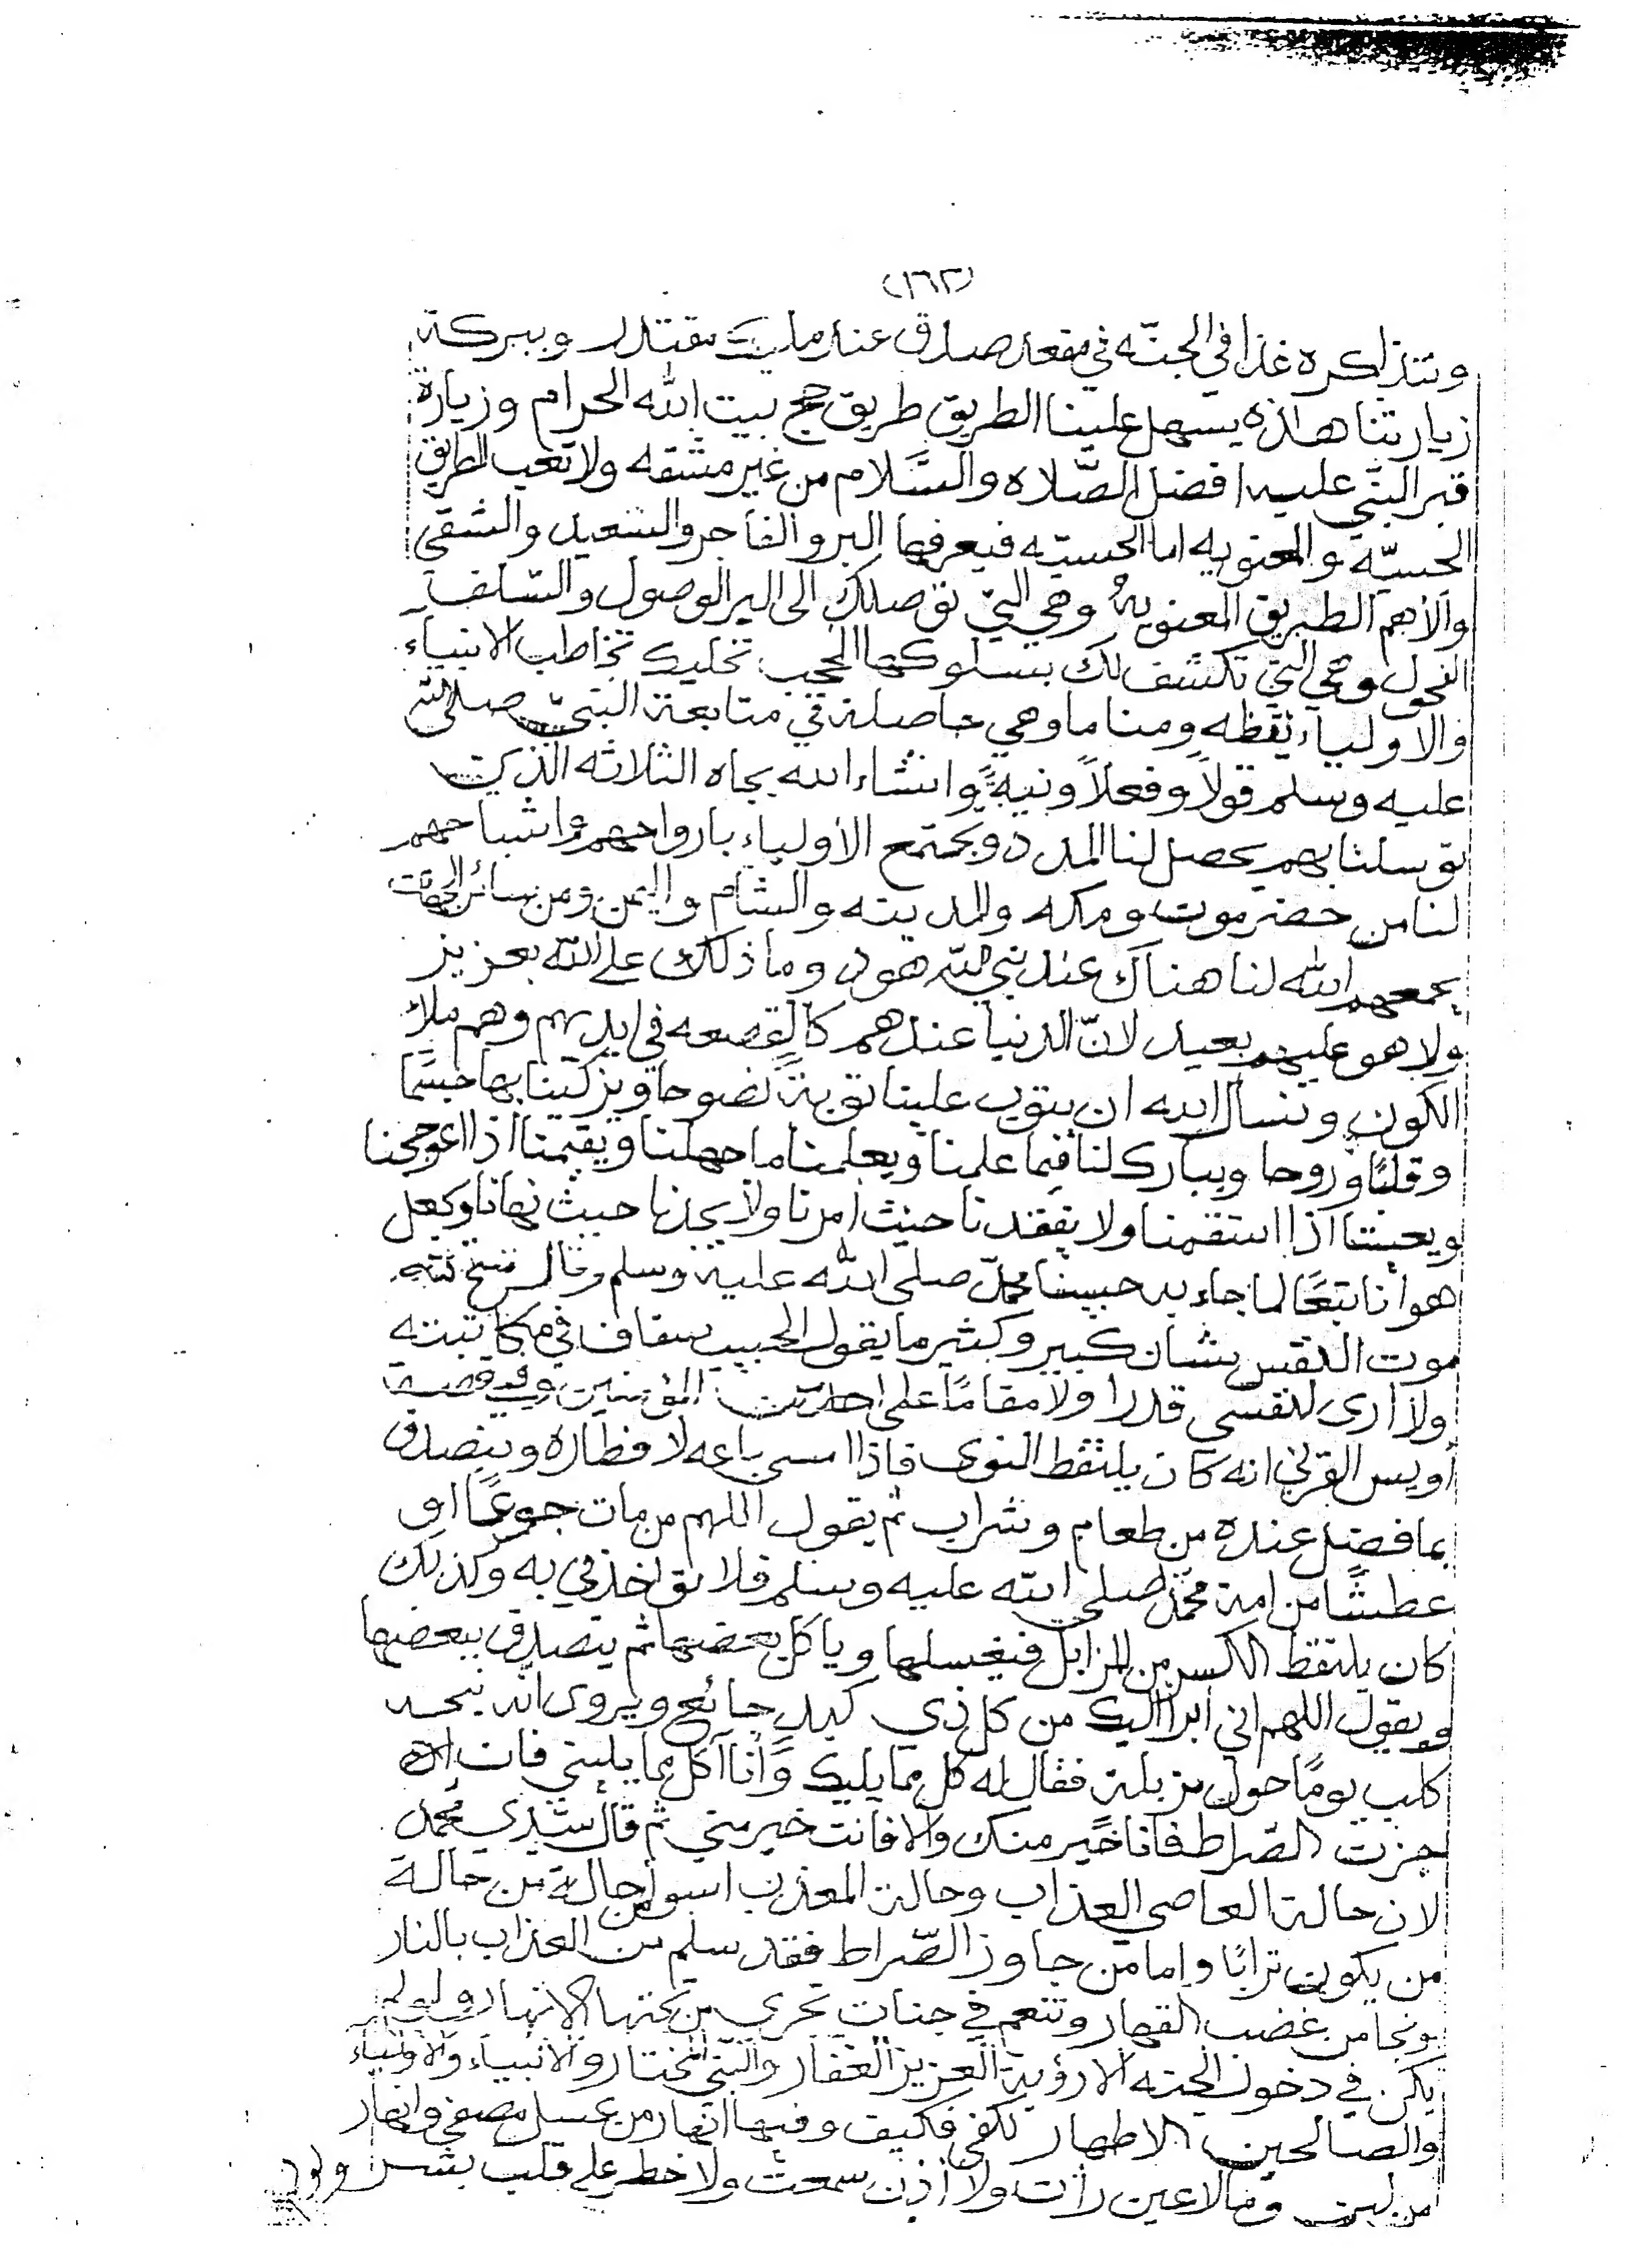 (١٦٢)
ونتذاكره غدا في الجنّه في مقعد صدق عند مليك مقتدر وببركة
زيارتنا هاذه يسهل علينا الطريق طريق حج بيت الله الحرام وزيارة
قبر النبّي عليه افضل الصّلاه والسَّلام من غير مشقه ولا تعب الطريق
الحسيّه والمعنويه اما الحسيّه فيعرفها البر والفاجر والسعيد والشقي
والأهم الطريق المعنويهْ وهي التيّ توصلك الى البر الوصول والسلف
الفحول وهي التي تكشف لك بسلوكها الحجب تخليك تخاطب الانبياء
والاولياء يقظه ومناما وهي حاصلة في متابعة النبيّ صلى الله
عليه وسلم قولاً وفعلاً ونيةً وانشاء الله بجاه الثلاثه الذي
توسلنا بهم يحصل لنا المدد ويجتمع الأولياء بارواحهم واشباحهم
لنا من حضرموت ومكه والمدينه والشام واليمن ومن سائر الجهات
يجمعهم الله لنا هناك عند نبي الله هود وما ذلك على الله بعزيز
ولا هو عليهم بعيد لانّ الدنيا عندهم كالقصعه في ايديهم وهم ملاك
الكون ونسال الله ان يتوب علينا توبةً نصوحا ويزكّينا بها جسمًا
وقلبًا وروحا ويبارك لنا فيما علمنا ويعلمنا ما جهلنا ويقيمنا اذا اعوججنا
ويحبنا اذا استقمنا ولا يفقدنا حيث امرنا ولا يجدنا حيث نهانا ويجعل
هوانا تبعًا لما جاء به حبيبنا محمدّ صلى الله عليه وسلم وقال
موت النفس بشان كبير وكثير ما يقول الحبيب سقاف في مكاتبته
ولا ارى لنفسي قدرا ولا مقامًا على احد من المؤمنين وفي قصة
أويس القرني انه كان يلتقط النوى فاذا امسى باعه لافطاره ويتصدق
بما فضل عنده من طعام وشراب ثم يقول اللهم من مات جوعًا او
عطشًا من امة محمّد صلى الله عليه وسلم فلا تواخذني به وكذلك
كان يلتقط الكسر من المزابل فيغسلها وياكل بعضها ثم يتصدق ببعضها
ويقول اللهم اني أبرأ اليك من كل ذي كبدٍ جائع ويروى انّه نبحه
كلب يومًا حول مزبلة فقال له كل مما يليك وأنا آكل مما يليني فان انا
جزت الصّراط فأنا خير منك والا فانت خير مني ثم قال سيّدي محمد
لان حالة العاصي العذاب وحالة المعذب اسوأ حالة من حالة
من يكون ترابًا وإما من جاوز الصّراط فقد سلم من العذاب بالنار
ونجا من غضب القهار وتنعم في جنات تجري من تحتها الانهار ولو لم
يكن في دخول الجنه الا رؤية العزيز الغفار والنبّي المختار والانبياء والاولياء
والصالحين الاطهار لكفى فكيف وفيها انهار من عسل مصفى وانهار
من لبن وما لا عين رأت ولا أذن سمعت ولا خطر على قلب بشر ولو